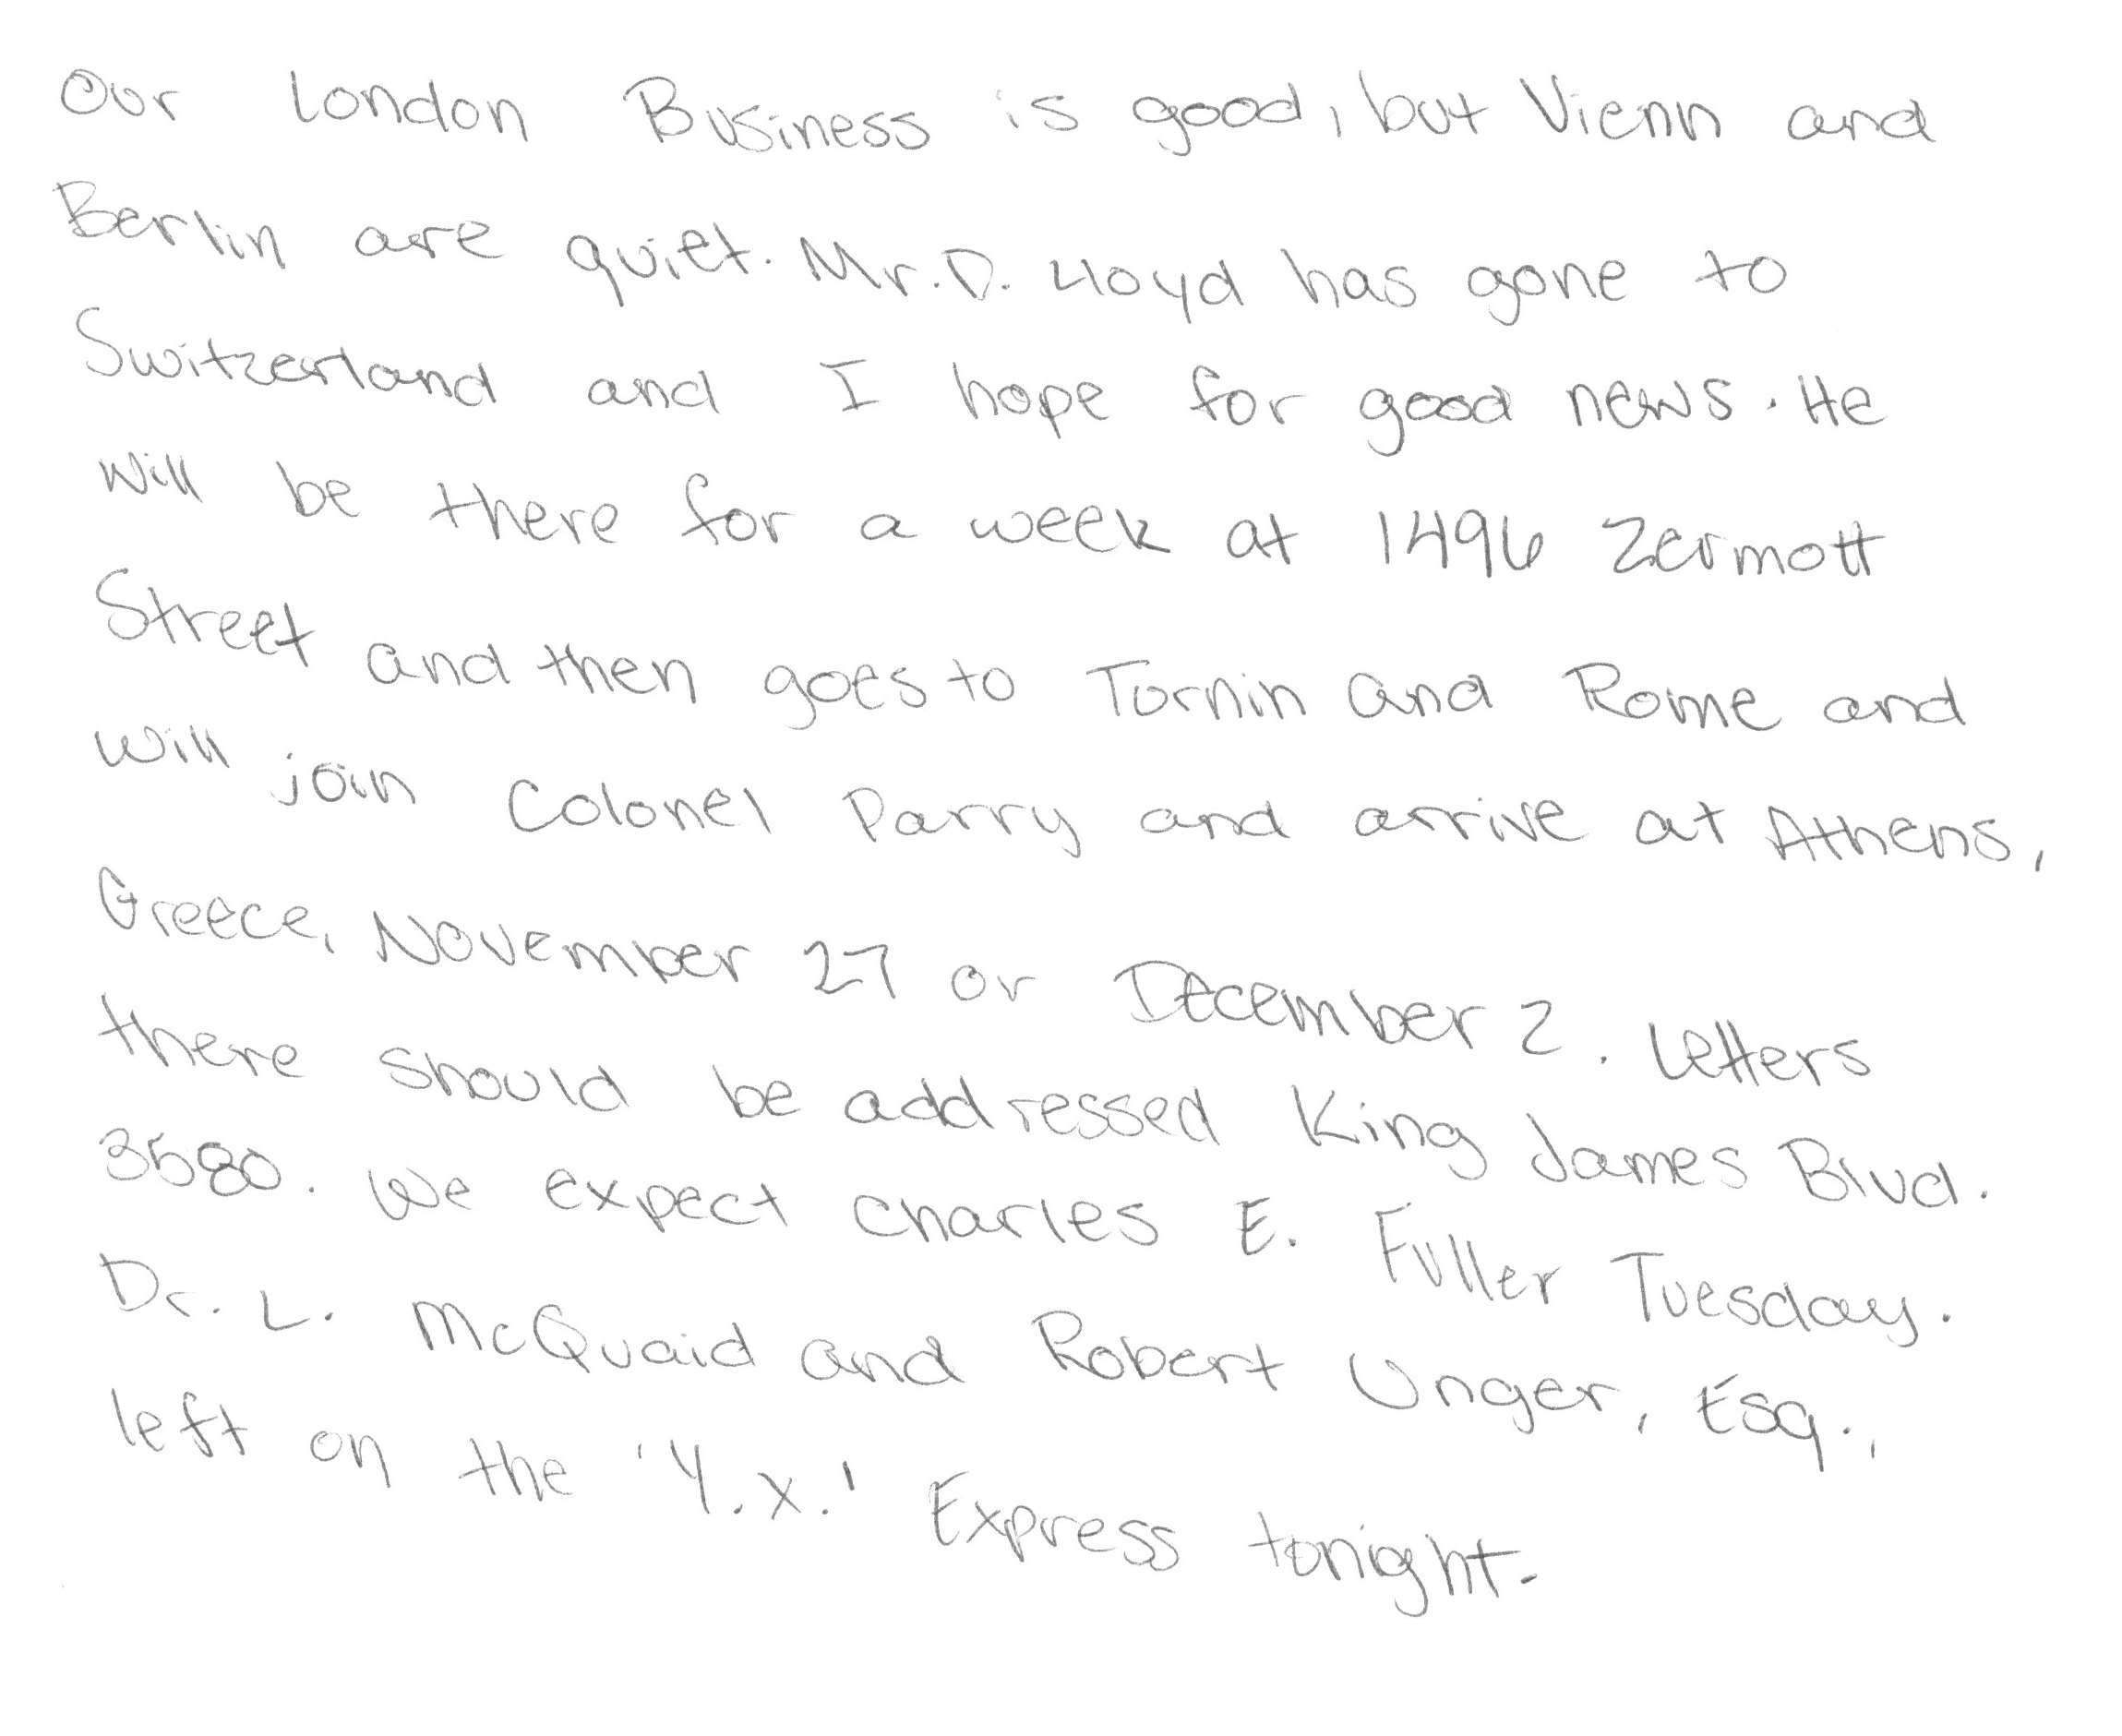 Our London Business is good, but Vienn and
Berlin are quiet. Mr. D. Lloyd has gone to
Switzerland and I hope for good news. He
will be there for a week at 1496 Zermott
Street and then goes to Tornin and Rome and
will join Colonel Parry and arrive at Athens,
Greece, November 27 or December 2. Letters
there should be addressed King James Blvd.
3580. We expect Charles E. Fuller Tuesday.
Dr. L. McQuaid and Robert Unger, Esq.,
left on the 'Y.X.' Express tonight.